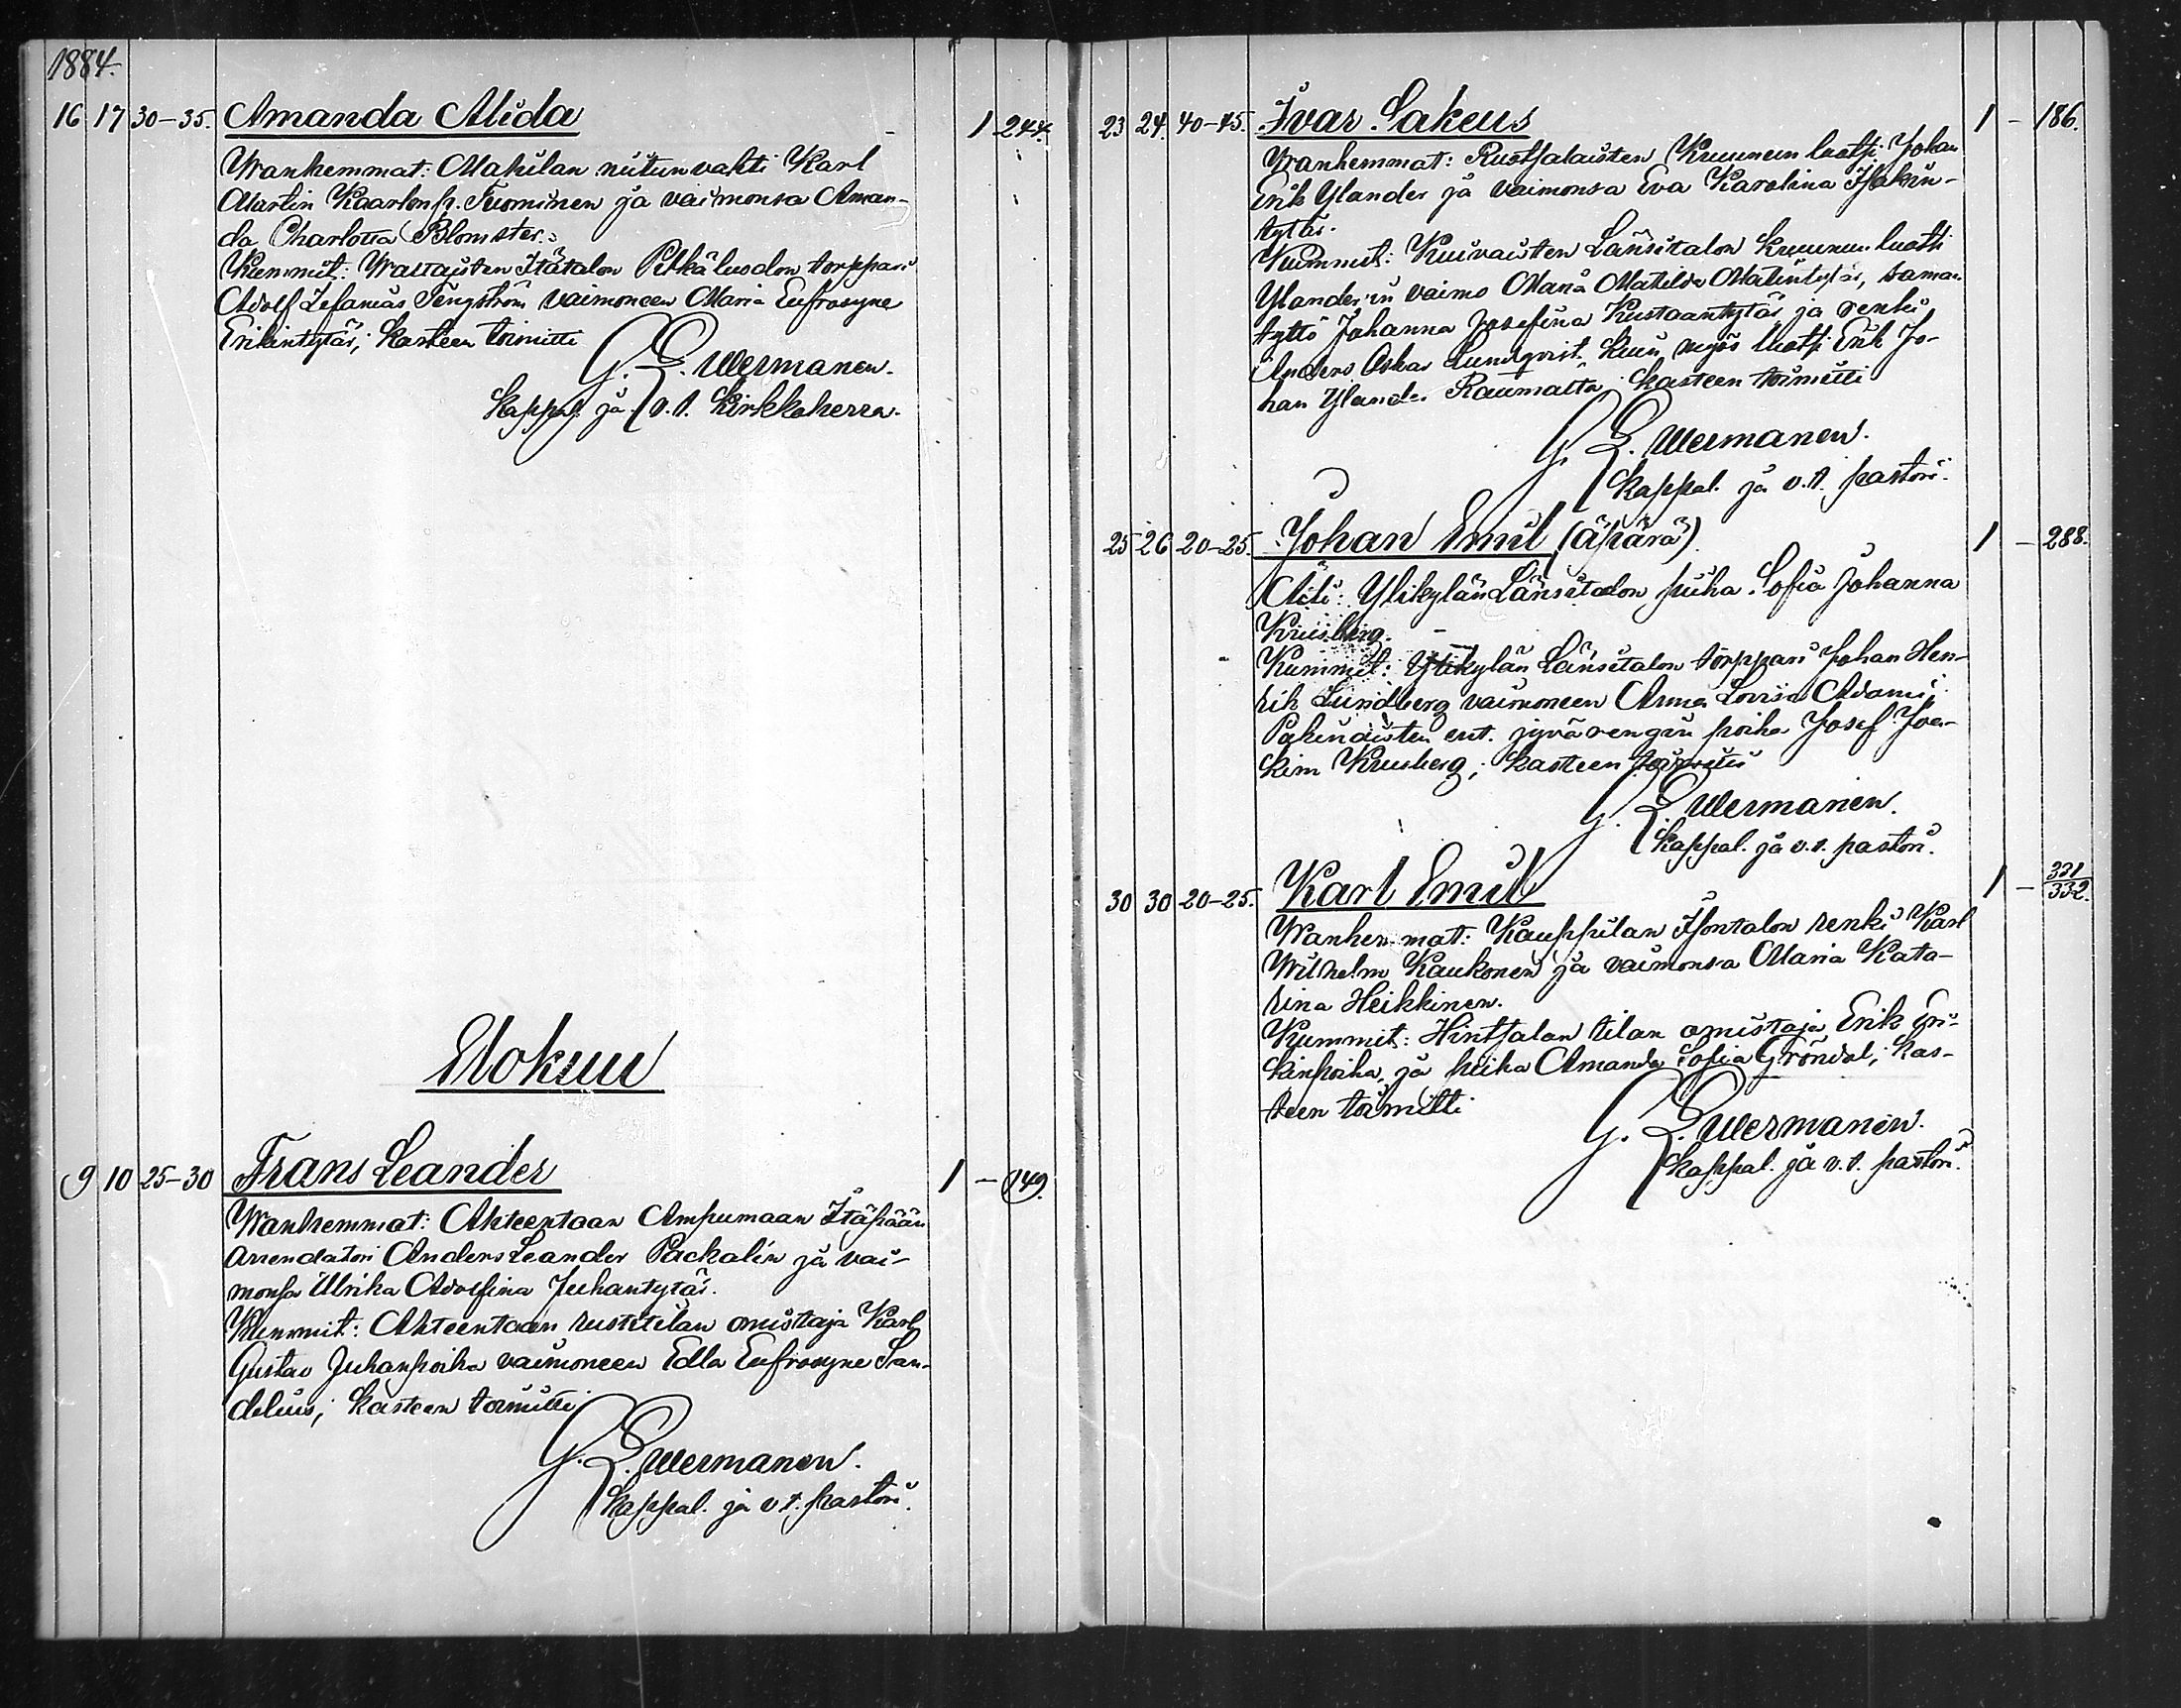 1884.
16 17 30-35. Amanda Alida 1 244.
Wanhemmat: Mahilan niitunvahti Karl
Martin Kaarlonp. Tuominen ja vaimonsa Aman-
da Charlotta Blomster.
Kummit: Itätalon Pitkäluodon torppari
Adolf Zefanias Tengström vaimoneen Maria Eufrosyne
Erikintytär; Kasteen toimitti
G. E. Wermanen.
Kappal. ja v.t. Kirkkoherra.
Elokuu
9 10 25-30 Frans Leander 1 - 149.
Wanhemmat: Ahteentaan Ampumaan Itäpään
Arrendatori Anders Leander Packalin ja vai-
monsa Ulrika Adolfina Juhantytär.
Kummit: Ahteentaan rustitilan omistaja Karl
Gustav Juhanpoika vaimoneen Edla Eufrosyne San-
delius; Kasteen toimitti
G. E. Wermanen.
Kappal. ja v.t. pastori.
23 24. 40-45. Ivar Sakeus 1 - 186.
Wanhemmat: Ruotsalaisten Kruunun luotsi Johan
Erik Ylander ja vaimonsa Eva Karolina Isakin-
tytär.
Kummit: Kuivaisten Länsitalon Kruunun luotsi
Ylander'in vaimo Maria Matilda Matintytär, saman
tyttö Johanna Josefina Kustaantytär ja renki
Anders Oskar Lundqvist kuin myös luotsi Erik Jo-
han Ylander Raumalta; Kasteen toimitti
G. E. Wermanen.
Kappal. ja v.t. pastori.
25 26 20-25. Johan Emil (äpärä). 1 - 288.
Äiti: Ylikylän Länsitalon piika Sofia Johanna
Kriusberg.
Kummit: Ylikylän Länsitalon torppari Johan Hen-
rik Lundberg vaimoneen Anna Lovisa Adami
Pahinaisten ent. jyvärengin poika Josef Joa-
kim Kruusberg; Kasteen toimitti
G. E. Wermanen.
Kappal. ja v.t. pastori.
30 30 20-25. Karl Emil 1 - 331/332.
Wanhemmat: Kauppilan Isontalon renki Karl
Wilhelm Kaukonen ja vaimonsa Maria Kata-
rina Heikkinen.
Kummit: Hintsalan tilan omistaja Erik Eri-
kinpoika, ja piika Amanda Sofia Gröndal; Kas-
teen toimitti
G. E. Wermanen.
Kappal. ja v.t. pastori.